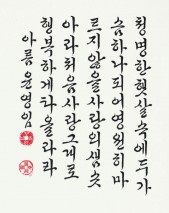 청명한햇살속에두가
슴하나되어영원히마
르지않을사랑의샘솟
아라처음사랑그대로
행복하게차올라라
아름 윤영임